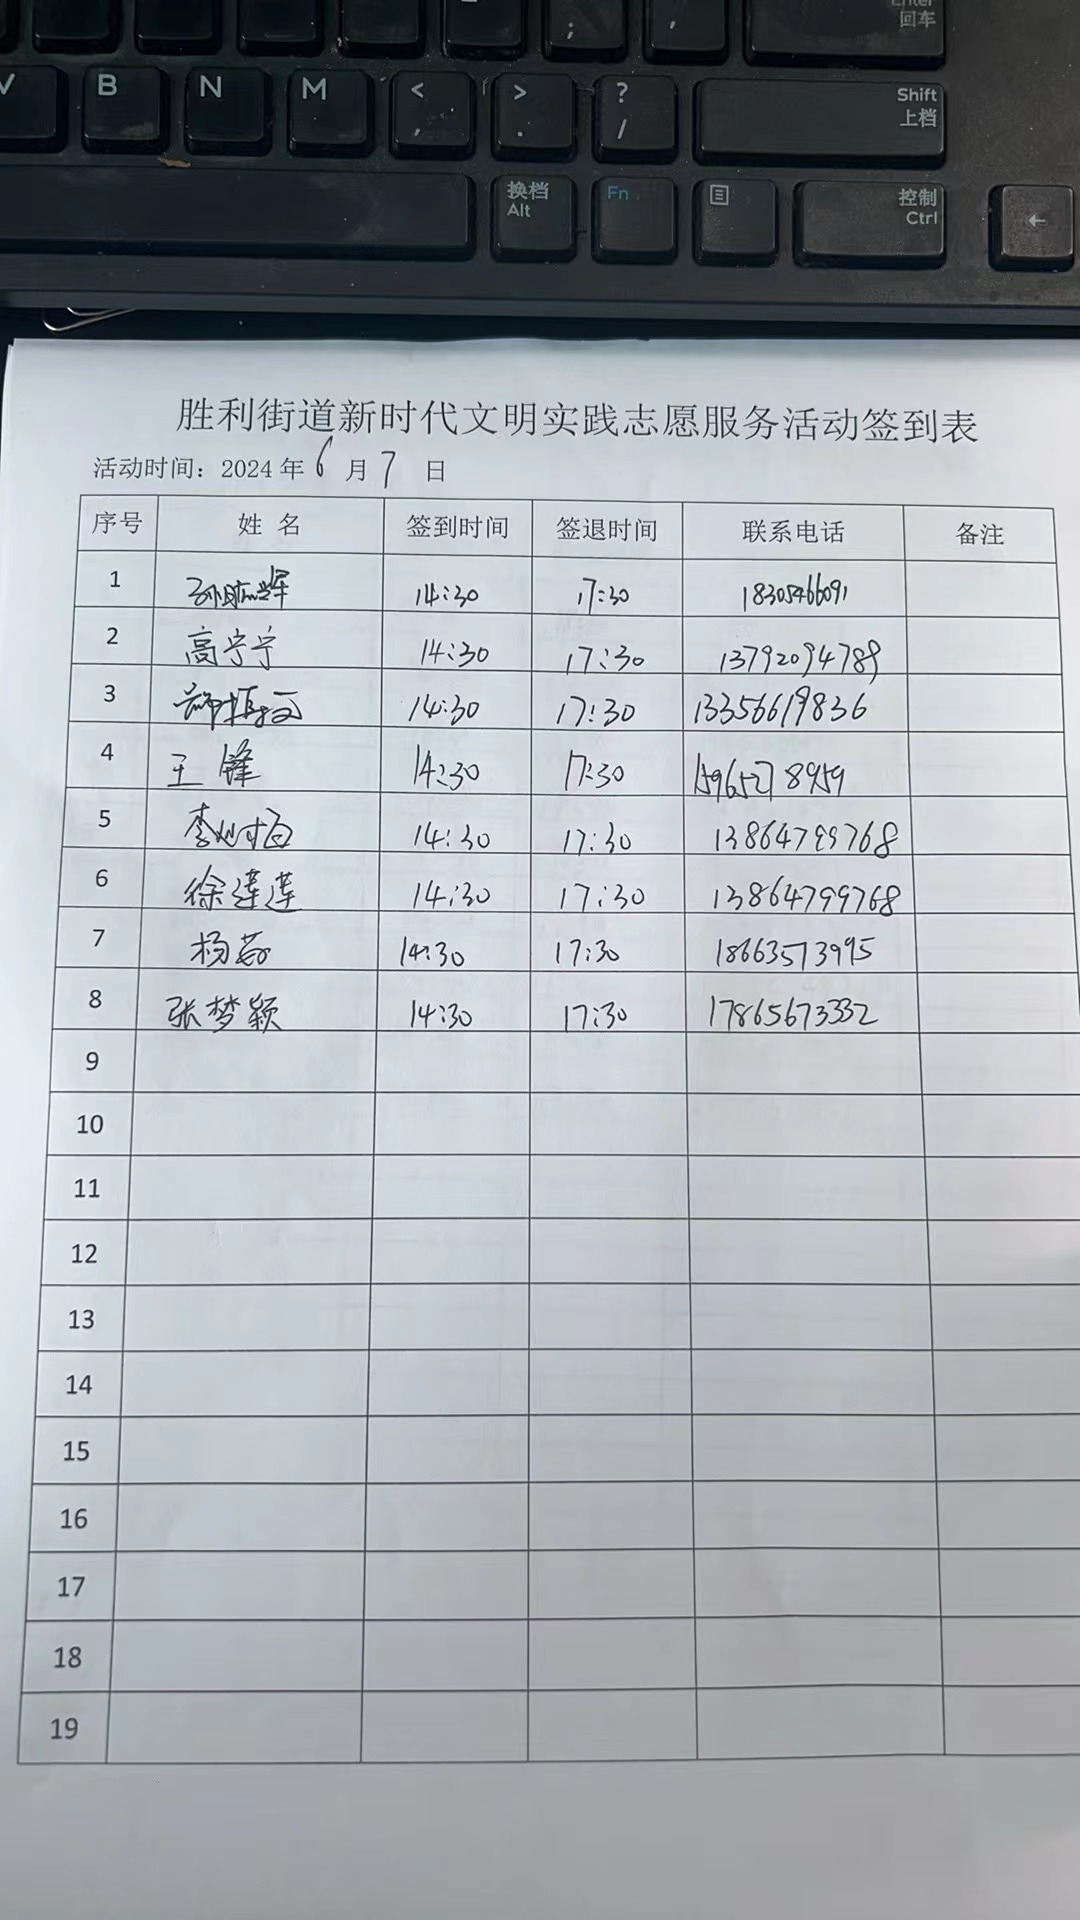 Enter
回车
; ,
V B N M < , > . ? / Shift
上档
换档
Alt Fn 控制
Ctrl ←
胜利街道新时代文明实践志愿服务活动签到表
活动时间：2024 年 6 月 7 日
序号 姓 名 签到时间 签退时间 联系电话 备注
1 14:30 17:30 18305466091
2 高宁宁 14:30 17:30 13792094789
3 14:30 17:30 13356619836
4 王锋 14:30 17:30 15965278959
5 14:30 17:30 13864799768
6 徐莲莲 14:30 17:30 13864799768
7 杨蕊 14:30 17:30 18663573995
8 张梦颖 14:30 17:30 17865673332
9
10
11
12
13
14
15
16
17
18
19